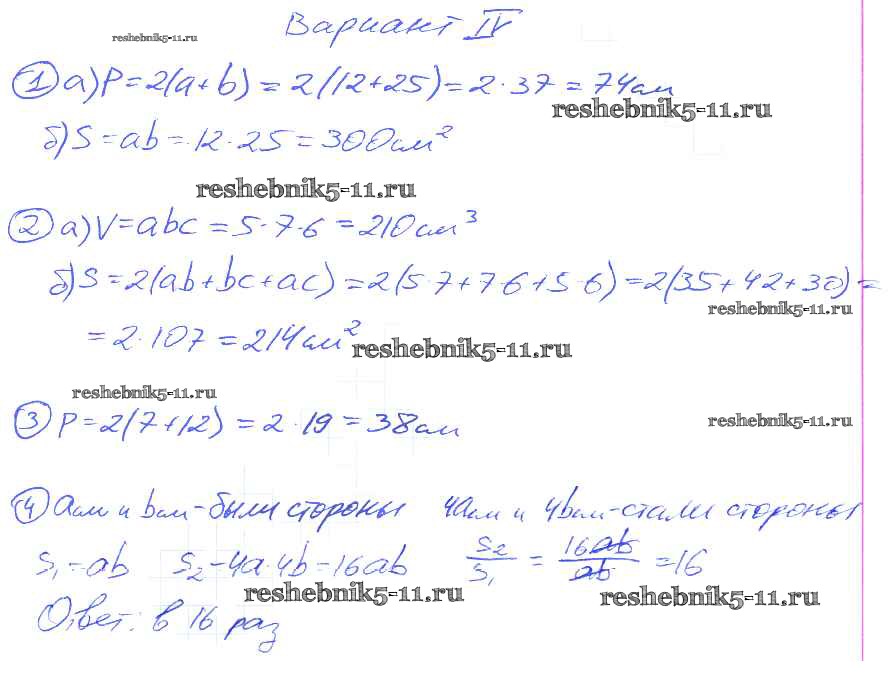 Вариант IV
reshebnik5-11.ru
① а) P = 2(a+b) = 2(12+25) = 2·37 = 74 см
reshebnik5-11.ru
б) S = ab = 12·25 = 300 см²
reshebnik5-11.ru
② а) V = abc = 5·7·6 = 210 см³
б) S = 2(ab+bc+ac) = 2(5·7+7·6+5·6) = 2(35+42+30) =
reshebnik5-11.ru
= 2·107 = 214 см²
reshebnik5-11.ru
reshebnik5-11.ru
③ P = 2(7+12) = 2·19 = 38 см
reshebnik5-11.ru
④ a см и b см - были стороны 4a см и 4b см - стали стороны
S₁ = ab S₂ = 4a·4b = 16ab S₂/S₁ = 16ab/ab = 16
reshebnik5-11.ru
reshebnik5-11.ru
Ответ: в 16 раз